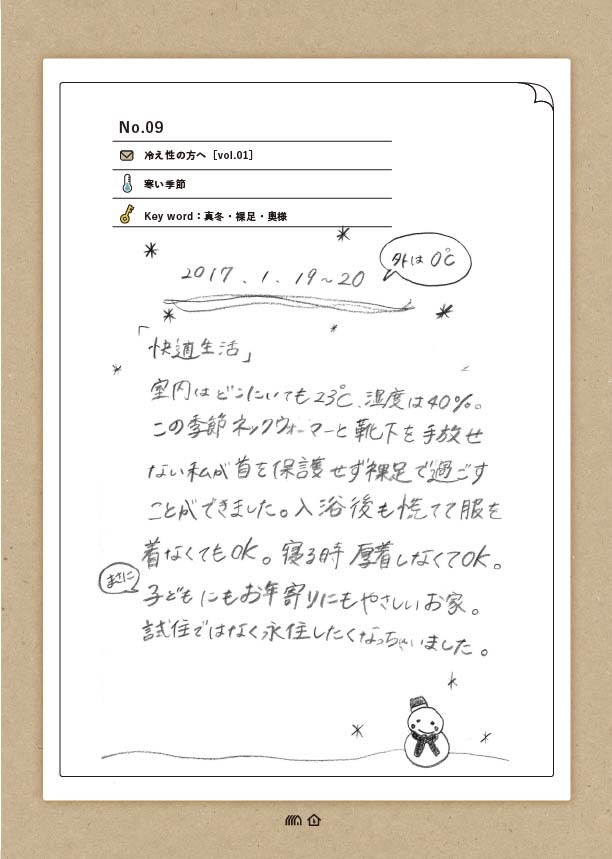 No.09
冷え性の方へ［vol.01］
寒い季節
Key word：真冬・裸足・奥様
2017.1.19~20
外は0℃
「快適生活」
室内はどこにいても23℃、湿度は40%。
この季節ネックウォーマーと靴下を手放せ
ない私が首を保護せず裸足で過ごす
ことができました。入浴後も慌てて服を
着なくてもOK。寝る時厚着しなくてOK。
まさに
子どもにもお年寄りにもやさしいお家。
試住ではなく永住したくなっちゃいました。